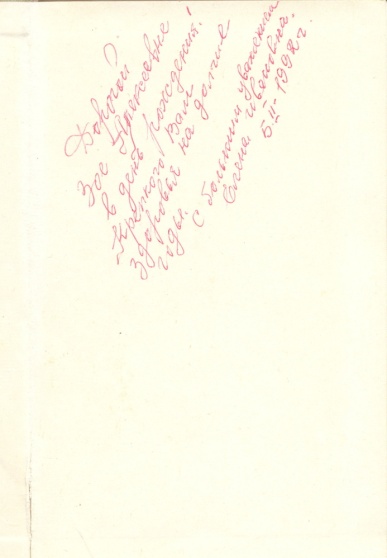 Дорогой
Зое Алексеевне
в день рождения!
Крепкого Вам
здоровья на долгие
годы.
С большим уважением
Елена Ивановна.
5-II-1992г.